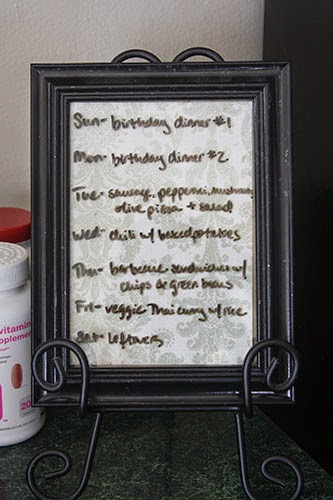 Sun- birthday dinner #1
Mon- birthday dinner #2
Tue- sausage, pepperoni, mushroom,
olive pizza + salad
Wed- chili w/ baked potatoes
Thu- barbecue sandwiches w/
chips & green beans
Fri- veggie Thai curry w/ rice
Sat- leftovers
vitamin
upplement
20